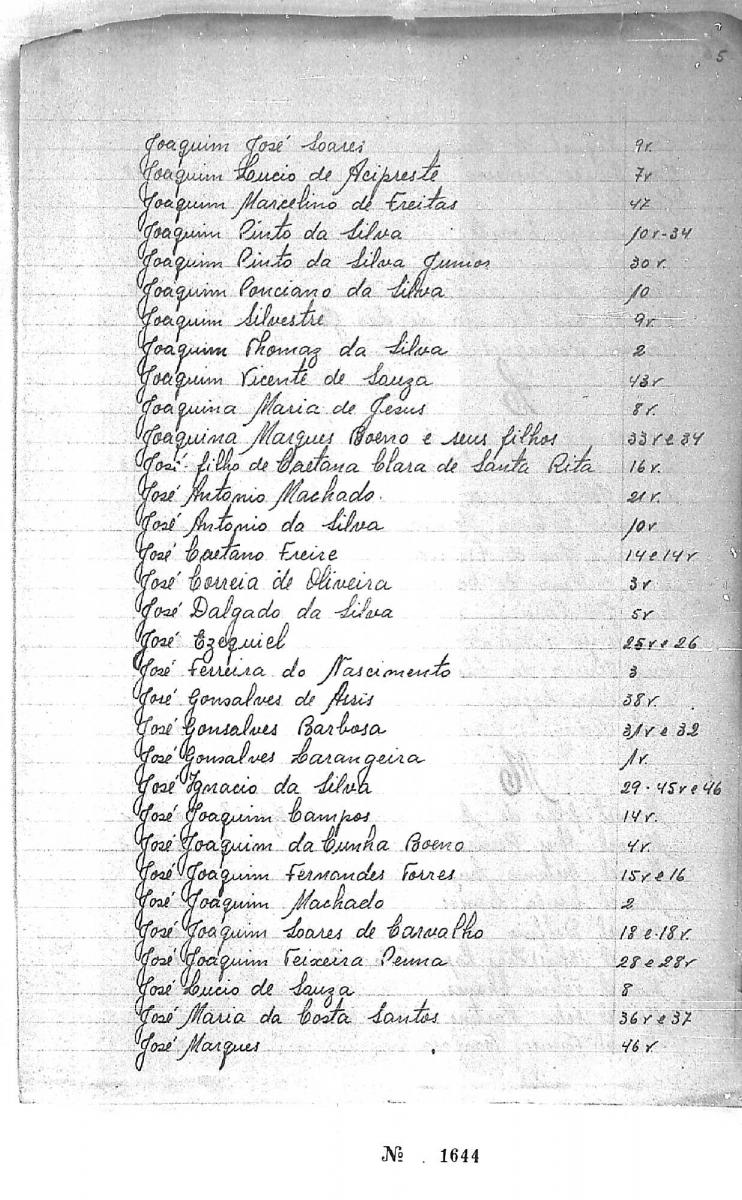 5
Joaquim José Soares 9v.
Joaquim Lucio de Acipreste 7v
Joaquim Marcelino de Freitas 47
Joaquim Pinto da Silva 10v-34
Joaquim Pinto da Silva Junior 30v.
Joaquim Ponciano da Silva 10
Joaquim Silvestre 9v.
Joaquim Thomaz da Silva 2
Joaquim Vicente de Souza 43v
Joaquina Maria de Jesus 8v.
Joaquina Marques Boeno e seus filhos 33v e 34
José filho de Caetana Clara de Santa Rita 16v.
José Antonio Machado. 21v.
José Antonio da Silva 10v
José Caetano Freire 14 e 14v
José Correia de Oliveira 3v
José Dalgado da Silva 5v
José Ezequiel 25v e 26
José Ferreira do Nascimento 3
José Gonsalves de Assis 38v.
José Gonsalves Barbosa 31v e 32
José Gonsalves Larangeira 1v.
José Ignacio da Silva 29-45v e 46
José Joaquim Campos 14v.
José Joaquim da Cunha Boeno 4v.
José Joaquim Fernandes Torres 15v e 16
José Joaquim Machado 2
José Joaquim Soares de Carvalho 18 e 18v.
José Joaquim Teixeira Penna 28 e 28v
José Lucio de Souza 8
José Maria da Costa Santos 36v e 37
José Marques 46v.
Nº 1644